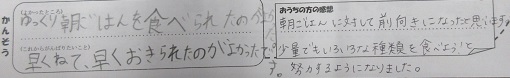 かんそう
(よかったところ)
ゆっくり朝ごはんを食べられたのがよかった
(これからがんばりたいこと)
早くねて、早くおきられたのがよかったです。
おうちの方の感想
朝ごはんに対して前向きになったと思います。
少量でもいろいろな種類を食べようと
努力するようになりました。